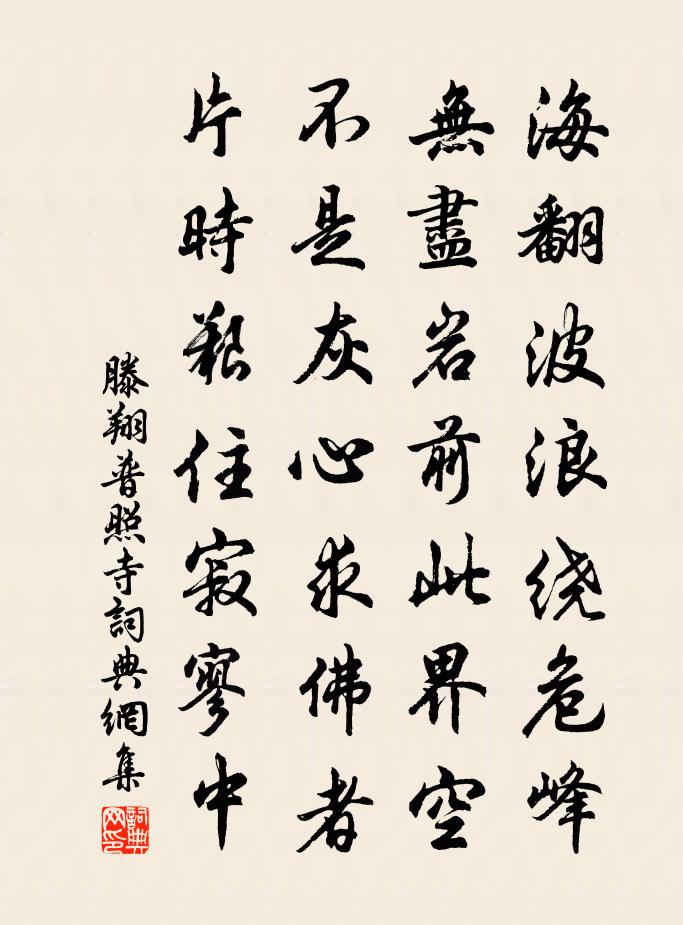 海翻波浪绕危峰
無盡岩前此界空
不是灰心求佛者
片時艱住寂寥中
滕翔普照寺詞典網集
詞典
网印